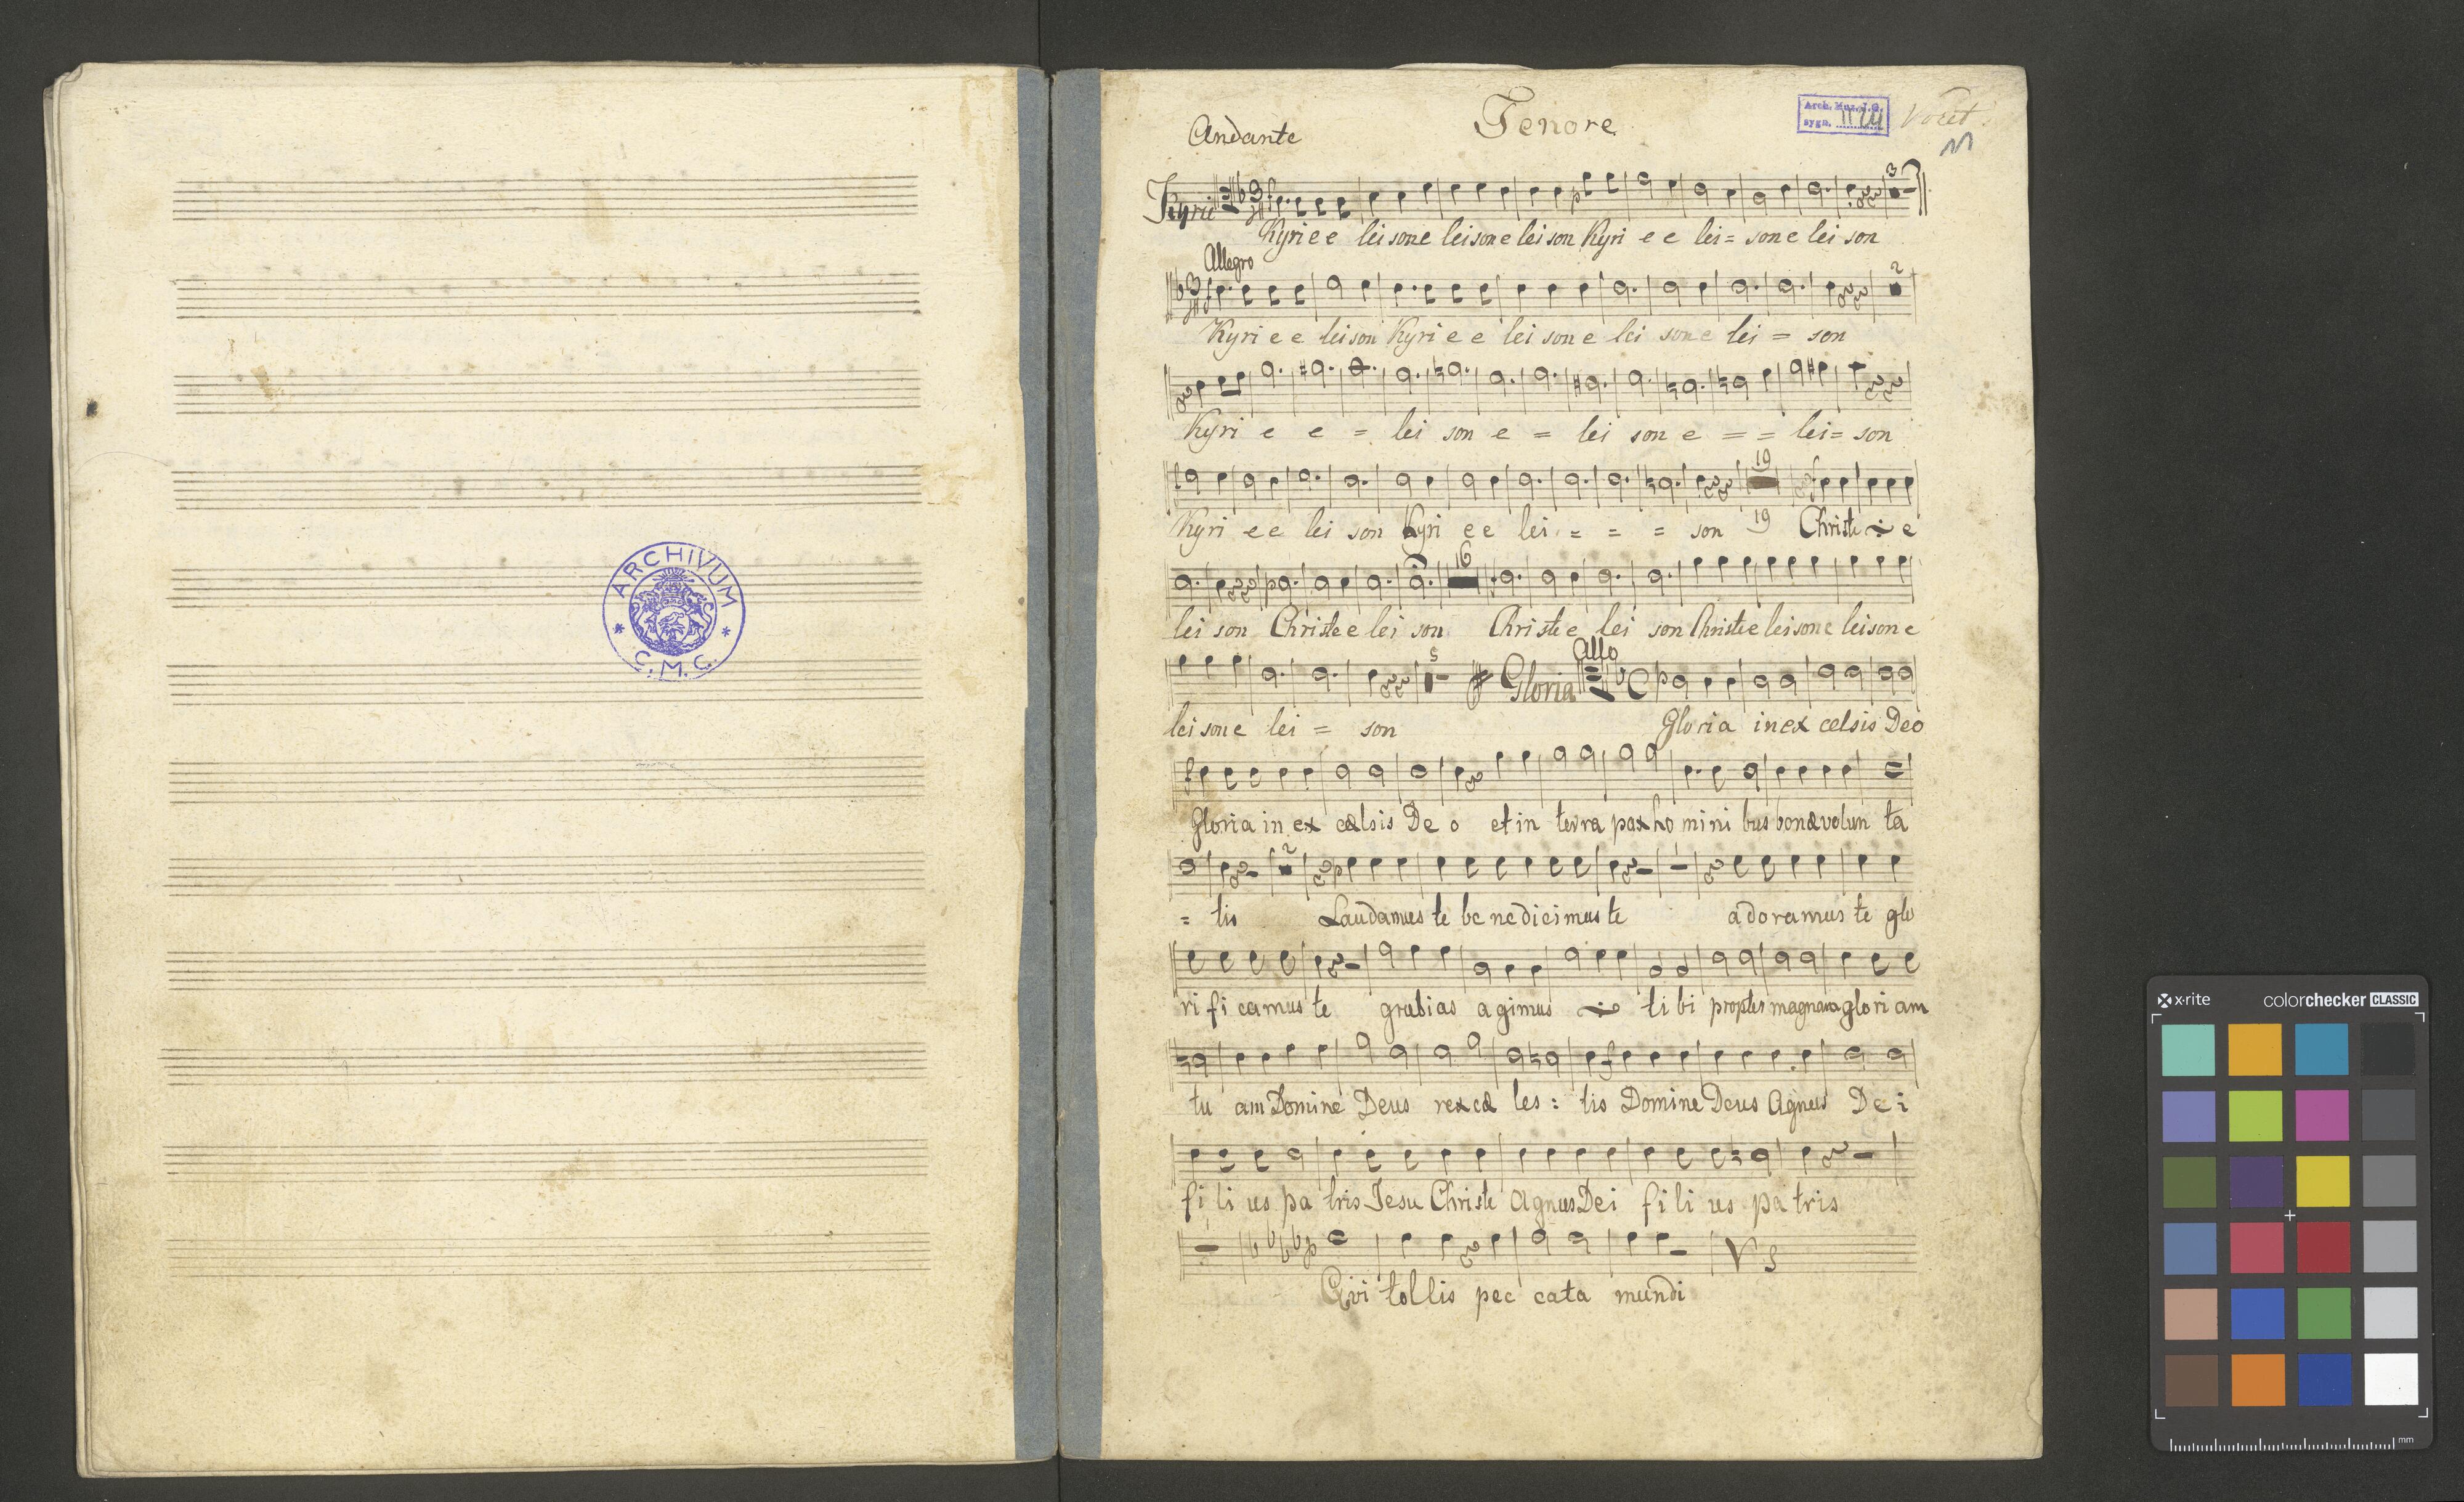 ARCHIVUM
* C. M. C. *
Tenore
Arch. Muz. J. G.
sygn.
Andante
3
Kyrie
Kyri e e lei son e lei son e lei son Kyri e e lei = son e lei son
Allegro
2
Kyri e e lei son Kyri e e lei son e lei son e lei = son
Kyri e e = lei son e = lei son e = = lei = son
19
Kyri e e lei son Kyri e e lei = = = son 19 Christe e
16
lei son Christe e lei son Christe e lei son Christe e lei son e lei son e
5 Gloria Allo C
lei son e lei = son Gloria in ex celsis Deo
Gloria in ex cælsis De o et in terra pax ho mini bus bonæ volun ta
2
= tis Laudamus te be nedicimus te adoramus te glo
ri fi camus te gratias agimus ti bi propter magnam glori am
tu am Domine Deus rex cæ les : tis Domine Deus Agnus De i
fi li us pa tris Jesu Christe Agnus Dei fi li us pa tris
V S
Qvi tollis pec cata mundi
x-rite colorchecker CLASSIC
mm